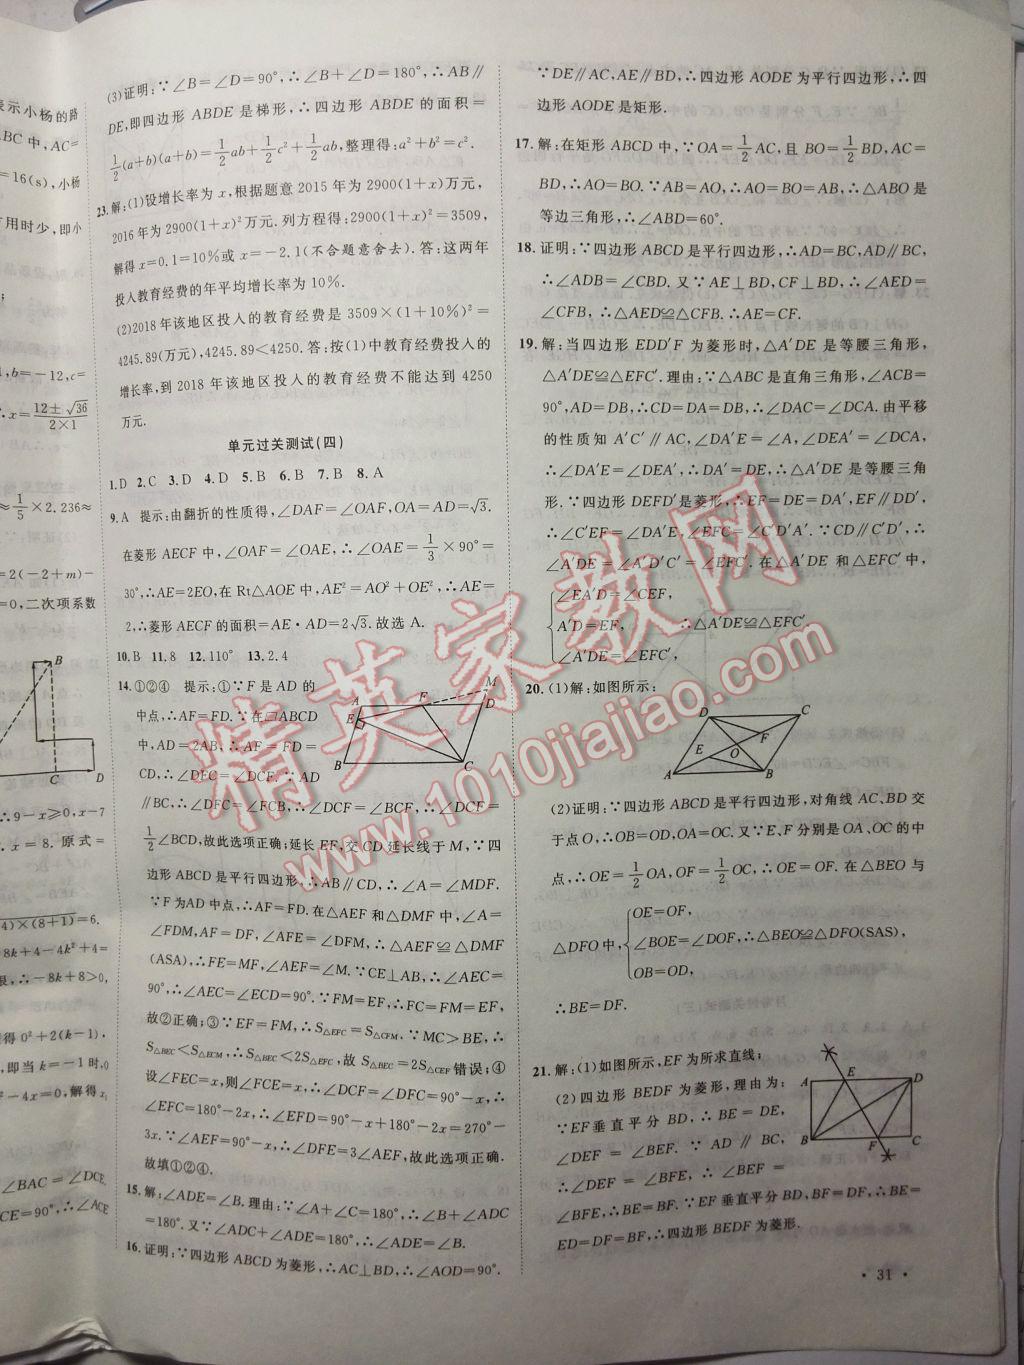 表示小杨的路
BC 中，AC=
=16(s)，小杨
用时少，即小
，b=-12，c=
∴x=(12±√36)/(2×1)
≈1/5×2.236≈
=2(-2+m)-
=0，二次项系数
B
C D
∴9-x≥0，x-7
x=8. 原式=
4)×(8+1)=6.
-8k+4-4k²+4=
∴-8k+8>0，
得 0²+2(k-1)，
，即当 k=-1 时，
-4x=0，解得 x
∠BAC=∠DCE.
CE=90°，∴∠ACE
(3)证明：∵∠B=∠D=90°，∴∠B+∠D=180°，∴AB∥
DE，即四边形 ABDE 是梯形，∴四边形 ABDE 的面积=
1/2(a+b)(a+b)=1/2ab+1/2c²+1/2ab，整理得：a²+b²=c².
23. 解：(1)设增长率为 x，根据题意 2015 年为 2900(1+x)万元，
2016 年为 2900(1+x)²万元. 列方程得：2900(1+x)²=3509，
解得 x=0.1=10%或 x=-2.1(不合题意舍去). 答：这两年
投入教育经费的年平均增长率为 10%.
(2)2018 年该地区投入的教育经费是 3509×(1+10%)²=
4245.89(万元)，4245.89<4250. 答：按(1)中教育经费投入的
增长率，到 2018 年该地区投入的教育经费不能达到 4250
万元.
单元过关测试(四)
1. D 2. C 3. D 4. D 5. B 6. B 7. B 8. A
9. A 提示：由翻折的性质得，∠DAF=∠OAF，OA=AD=√3.
在菱形 AECF 中，∠OAF=∠OAE，∴∠OAE=1/3×90°=
30°，∴AE=2EO，在 Rt△AOE 中，AE²=AO²+OE²，∴AE=
2，∴菱形 AECF 的面积=AE·AD=2√3. 故选 A.
10. B 11. 8 12. 110° 13. 2.4
14. ①②④ 提示：①∵F 是 AD 的
中点，∴AF=FD. ∵在▱ABCD
中，AD=2AB，∴AF=FD=
CD，∴∠DFC=∠DCF. ∵AD
∥BC，∴∠DFC=∠FCB，∴∠DCF=∠BCF，∴∠DCF=
1/2∠BCD，故此选项正确；延长 EF，交 CD 延长线于 M，∵四
边形 ABCD 是平行四边形，∴AB∥CD，∴∠A=∠MDF.
∵F 为 AD 中点，∴AF=FD. 在△AEF 和△DMF 中，∠A=
∠FDM，AF=DF，∠AFE=∠DFM，∴△AEF≌△DMF
(ASA)，∴FE=MF，∠AEF=∠M. ∵CE⊥AB，∴∠AEC=
90°，∴∠AEC=∠ECD=90°. ∵FM=EF，∴FC=FM=EF，
故②正确；③∵EF=FM，∴S△EFC=S△CFM. ∵MC>BE，∴
S△BEC<S△ECM，∴S△BEC<2S△EFC，故 S△BEC=2S△CEF错误；④
设∠FEC=x，则∠FCE=x，∴∠DCF=∠DFC=90°-x，∴
∠EFC=180°-2x，∴∠EFD=90°-x+180°-2x=270°-
3x. ∵∠AEF=90°-x，∴∠DFE=3∠AEF，故此选项正确.
故填①②④.
A E F M D B C
15. 解：∠ADE=∠B. 理由：∵∠A+∠C=180°，∴∠B+∠ADC
=180°. 又∵∠ADC+∠ADE=180°，∴∠ADE=∠B.
16. 证明：∵四边形 ABCD 为菱形，∴AC⊥BD，∴∠AOD=90°.
∵DE∥AC，AE∥BD，∴四边形 AODE 为平行四边形，∴四
边形 AODE 是矩形.
17. 解：在矩形 ABCD 中，∵OA=1/2AC，且 BO=1/2BD，AC=
BD，∴AO=BO. ∵AB=AO，∴AB=AO=BO，∴△ABO 是
等边三角形，∴∠ABD=60°.
18. 证明：∵四边形 ABCD 是平行四边形，∴AD=BC，AD∥BC，
∴∠ADB=∠CBD. 又∵AE⊥BD，CF⊥BD，∴∠AED=
∠CFB，∴△AED≌△CFB. ∴AE=CF.
19. 解：当四边形 EDD′F 为菱形时，△A′DE 是等腰三角形，
△A′DE≌△EFC′. 理由：∵△ABC 是直角三角形，∠ACB=
90°，AD=DB，∴CD=DA=DB，∴∠DAC=∠DCA. 由平移
的性质知 A′C′∥AC，∠DA′E=∠A，∠DEA′=∠DCA，
∴∠DA′E=∠DEA′，∴DA′=DE，∴△A′DE 是等腰三角
形. ∵四边形 DEFD′是菱形，∴EF=DE=DA′，EF∥DD′，
∴∠C′EF=∠DA′E，∠EFC=∠C′D′A′. ∵CD∥C′D′，∴
∠A′DE=∠A′D′C′=∠EFC. 在△A′DE 和△EFC′中，
{∠EA′D=∠CEF，
A′D=EF， ∴△A′DE≌△EFC′.
∠A′DE=∠EFC′，
20. (1)解：如图所示：
D C F E O A B
(2)证明：∵四边形 ABCD 是平行四边形，对角线 AC、BD 交
于点 O，∴OB=OD，OA=OC. 又∵E、F 分别是 OA、OC 的中
点，∴OE=1/2OA，OF=1/2OC，∴OE=OF. 在△BEO 与
{OE=OF，
△DFO 中，∠BOE=∠DOF，∴△BEO≌△DFO(SAS)，
OB=OD，
∴BE=DF.
21. 解：(1)如图所示，EF 为所求直线；
(2)四边形 BEDF 为菱形，理由为：
∵EF 垂直平分 BD，∴BE=DE，
∠DEF=∠BEF. ∵AD∥BC，
∴∠DEF=∠BFE，∴∠BEF=
∠BFE，∴BE=BF. ∵EF 垂直平分 BD，BF=DF，∴BE=
ED=DF=BF，∴四边形 BEDF 为菱形.
A E D B F C
· 31 ·
精英家教网
www.1010jiajiao.com